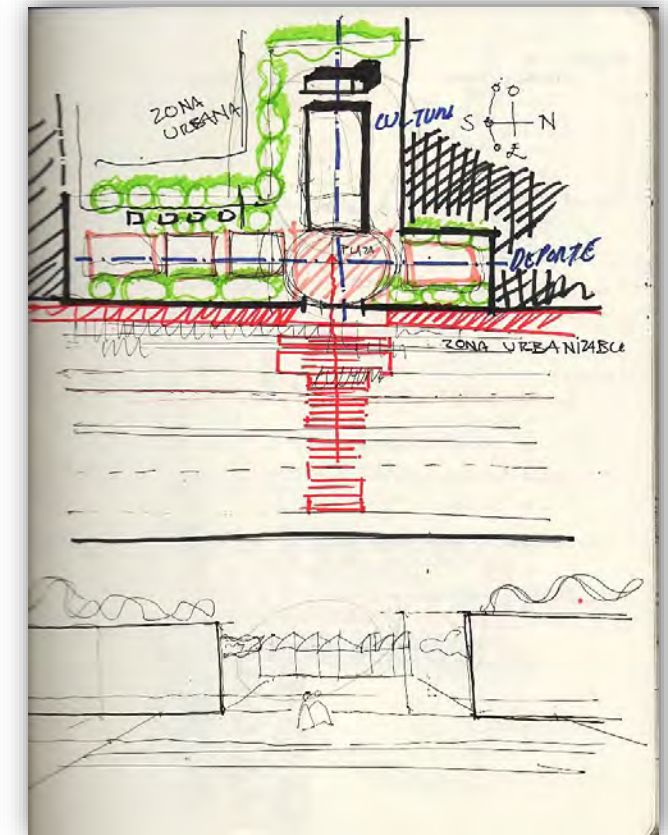 ZONA
URBANA
CULTURA
O
S N
E
PLAZA
DEPORTE
ZONA URBANIZABLE